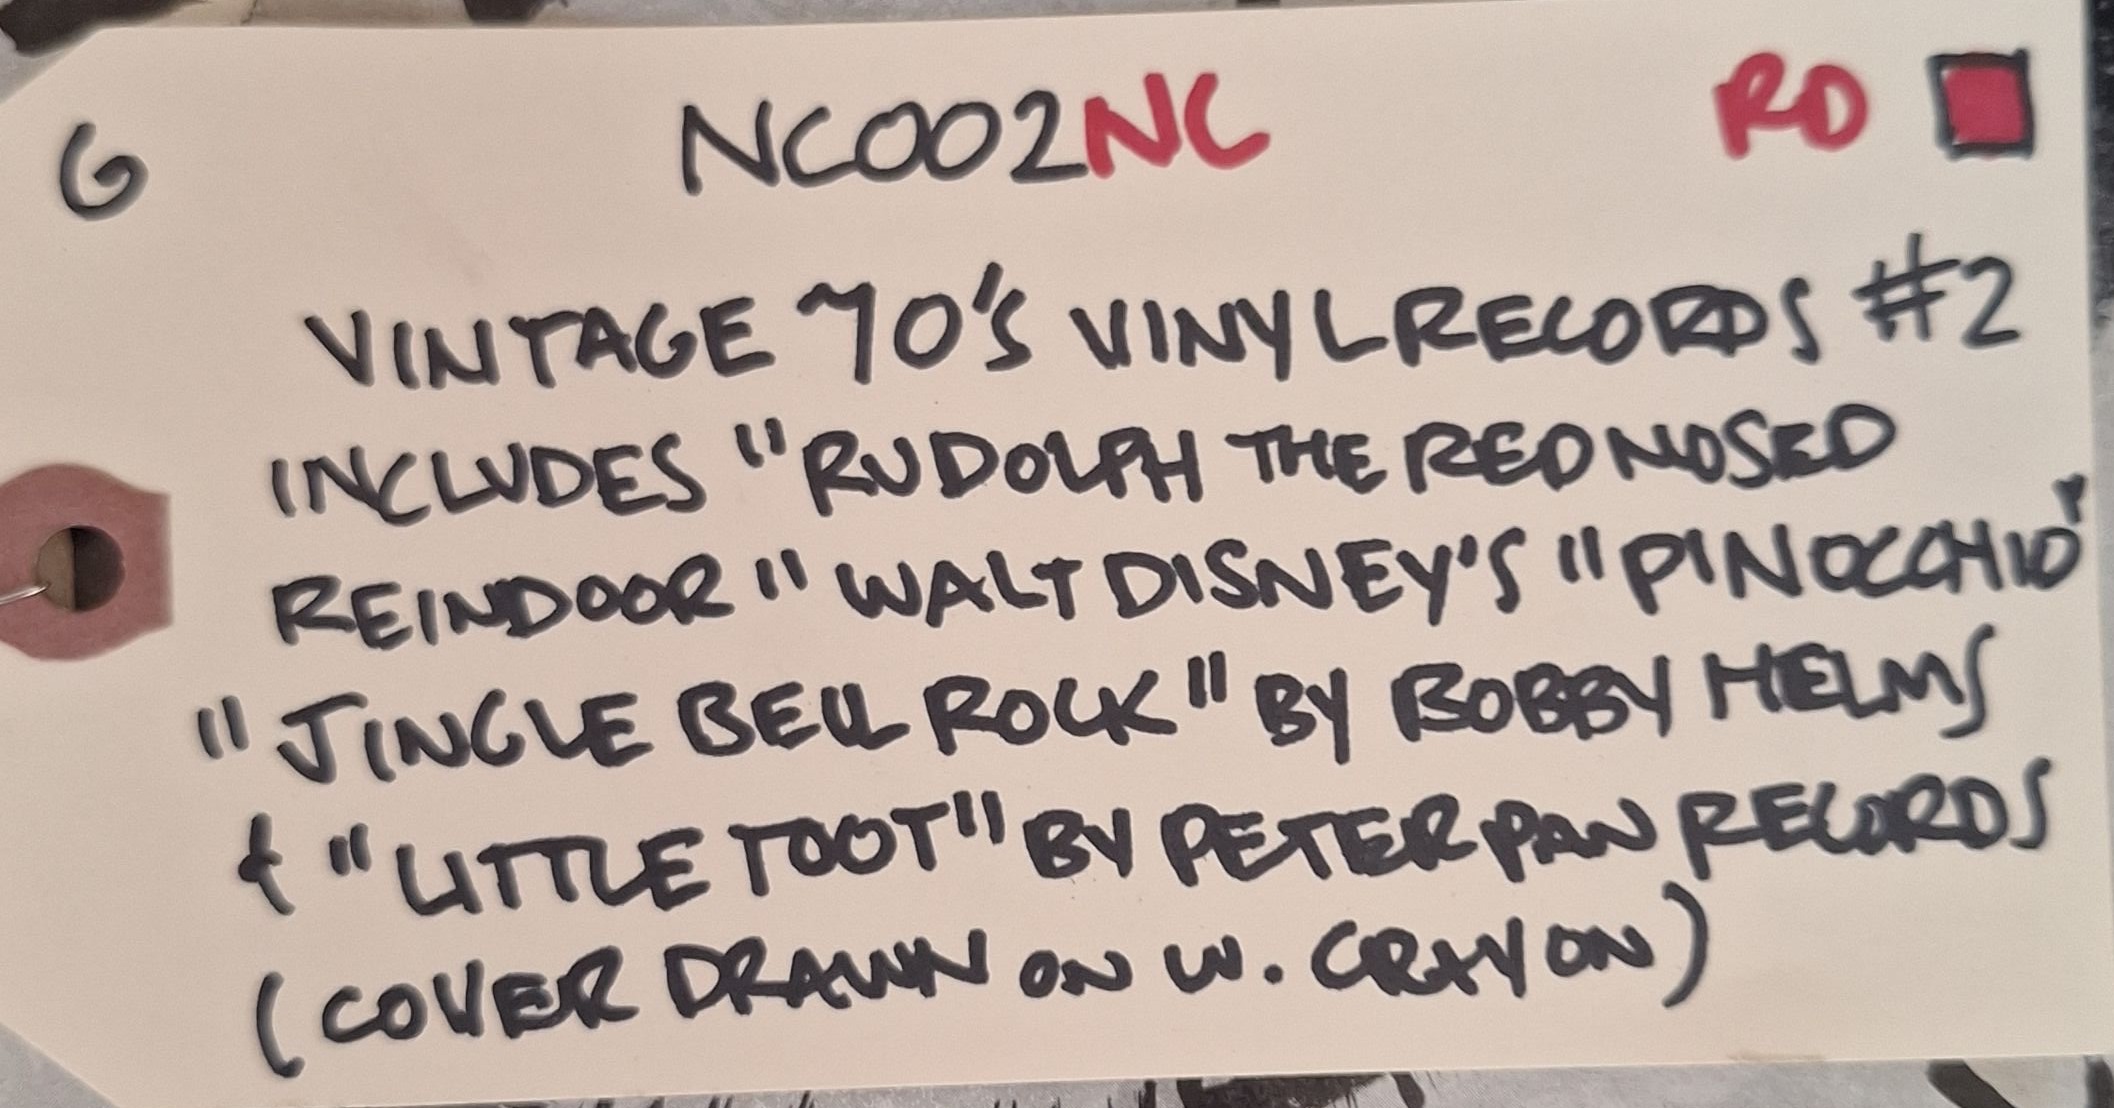 G NC002NC RD
VINTAGE 70's VINYL RECORDS #2
INCLUDES "RUDOLPH THE RED NOSED
REINDOOR" WALT DISNEY'S "PINOCCHIO"
"JINGLE BELL ROCK" BY BOBBY HELMS
& "LITTLE TOOT" BY PETER PAN RECORDS
(COVER DRAWN ON W. CRAYON)